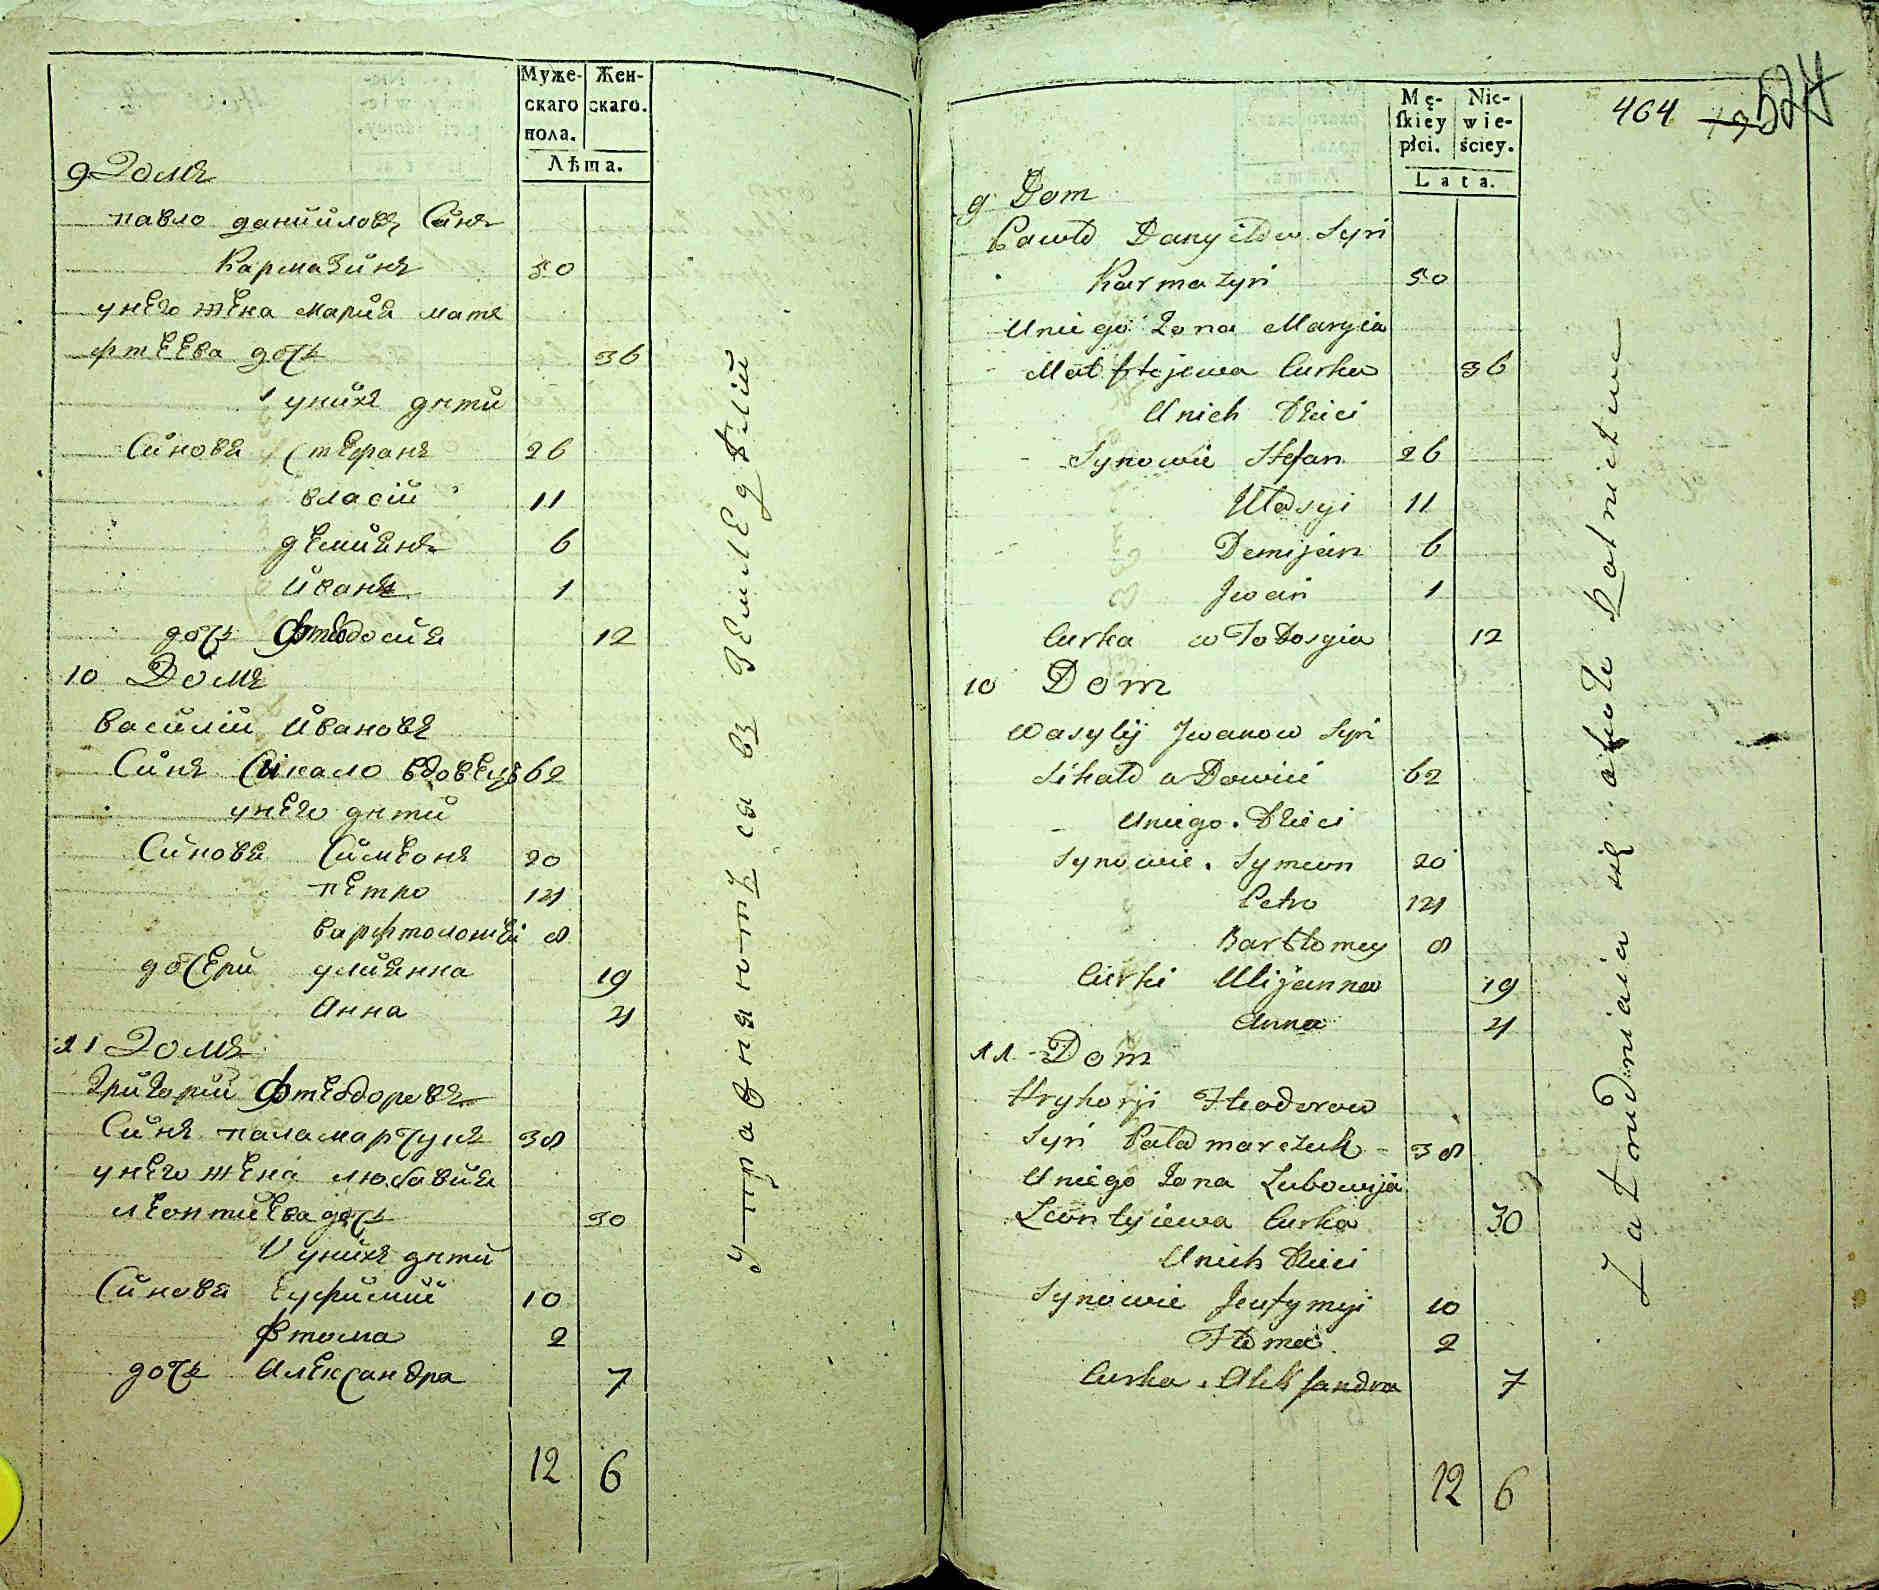 Муже- Жен-
скаго скаго.
пола.
Лѣта.
9 Домъ
павло данииловъ Синъ
Кармазинъ 50
унего жена мариа матъ
фтеева дочь 36
уникъ дѣти
Синова Стефанъ 26
власiй 11
демианъ 6
иванъ 1
дочь Фтеодосиа 12
10 Домъ
василiй Ивановъ
Синъ Сикало вдовецъ 62
унего дѣти
Синова Симеонъ 20
петро 14
варфтоломей 8
дочери улианна 19
Анна 4
11 Домъ
Григорий Фтеодоровъ
Синъ паламарчукъ 38
унего жена любовиа
леонтиева дочь 30
уникъ дѣти
Синова Еуфимий 10
Фтома 2
дочь Александра 7
12 6
упражняютъ ся въ земледѣлiи
Mę- Nie-
skiey wie-
płci. ściey.
Lata.
464 524
9 Dom
Pawło Danyiłów Syn
Karmazyn 50
Uniego Zona Maryia
Matftejewa Curka 36
Unich Dzieci
Synowie Stefan 26
Własyi 11
Demijan 6
Jwan 1
Curka Ftodosyia 12
10 Dom
Wasylij Jwanow Syn
Sikało wDowieć 62
Uniego Dzieci
Synowie Symeon 20
Petro 14
Bartłomey 8
Curki Ulijanna 19
Anna 4
11 Dom
Hryhorji Fteodorow
Syn Pałamarczuk 38
Uniego Zona Lubowija
Leontyiewa Curka 30
Unich Dzieci
Synowie Jeufymyi 10
Ftoma 2
Curka Aleksandra 7
12 6
Zatrudniaia się około Rolnictwa